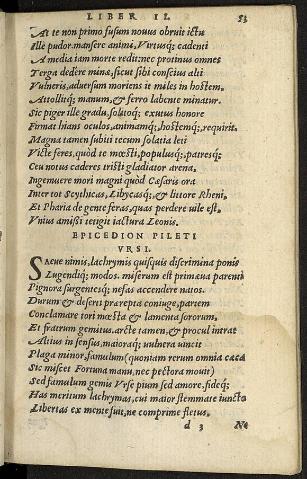 LIBER II. 53
At te non primo fusum nouus obruit ictu
Ille pudor. mansere animi, Virtusq; cadenti
A media iam morte redit: nec protinus omnes
Terga dedêre minæ, sicut sibi conscius alti
Vulneris, aduersum moriens it miles in hostem,
Attollitq; manum, & ferro labente minatur.
Sic piger ille gradu, solitoq; exutus honore
Firmat hians oculos, animamq; hostemq; requirit.
Magna tamen subiti tecum solatia leti
Victe feres, quòd te mœsti, populusq;, patresq;
Ceu notus caderes tristi gladiator arena,
Ingemuere mori magni quòd Cæsaris ora
Inter tot Scythicas, Libycasq; & littore Rheni,
Et Pharia de gente feras, quas perdere uile est,
Vnius amissi tetigit iactura Leonis.
EPICEDION PILETI
VRSI.
SAeue nimis, lachrymis quisquis discrimina ponis
Lugendiq; modos. miserum est primæua parenti
Pignora surgentesq; nefas accendere natos.
Durum & deserti prærepta coniuge, partem
Conclamare tori mœsta & lamenta sororum,
Et fratrum gemitus. arcte tamen, & procul intrat
Altius in sensus, maioraq; uulnera uincit
Plaga minor, famulum (quoniam rerum omnia cæca
Sic miscet Fortuna manu, nec pectora mouit)
Sed famulum gemis Vrse pium sed amore, fideq;
Has meritum lachrymas, cui maior stemmate iuncto
Libertas ex mente fuit, ne comprime fletus,
d 3 Ne